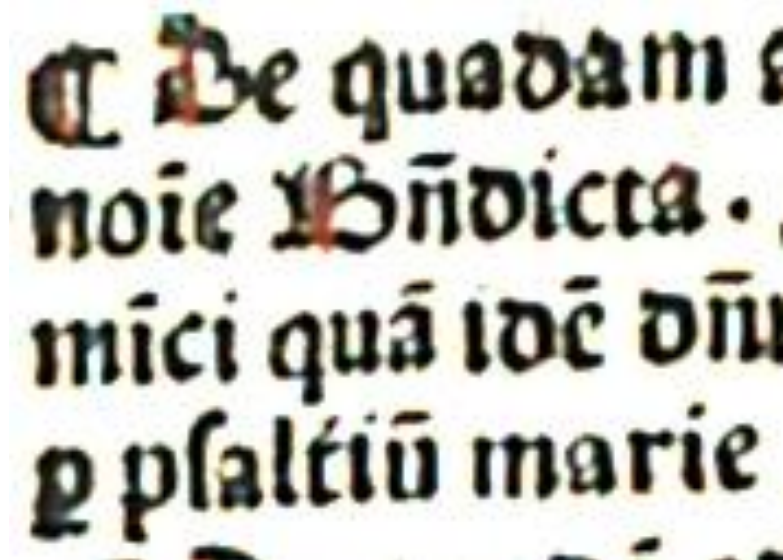 ¶ De quadam
noīe Bn̄dicta.
mīci quā idē dn̄
ꝑ pſalťiū marie